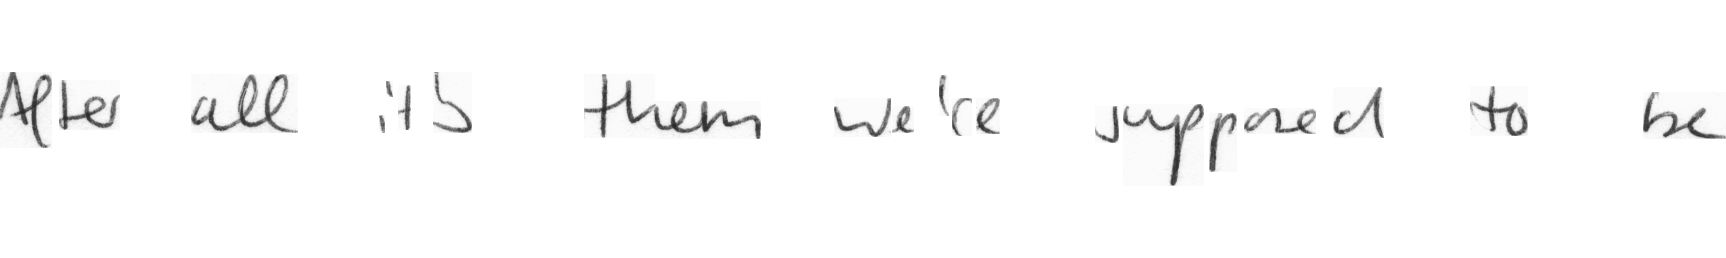 After all it's them we're supposed to be